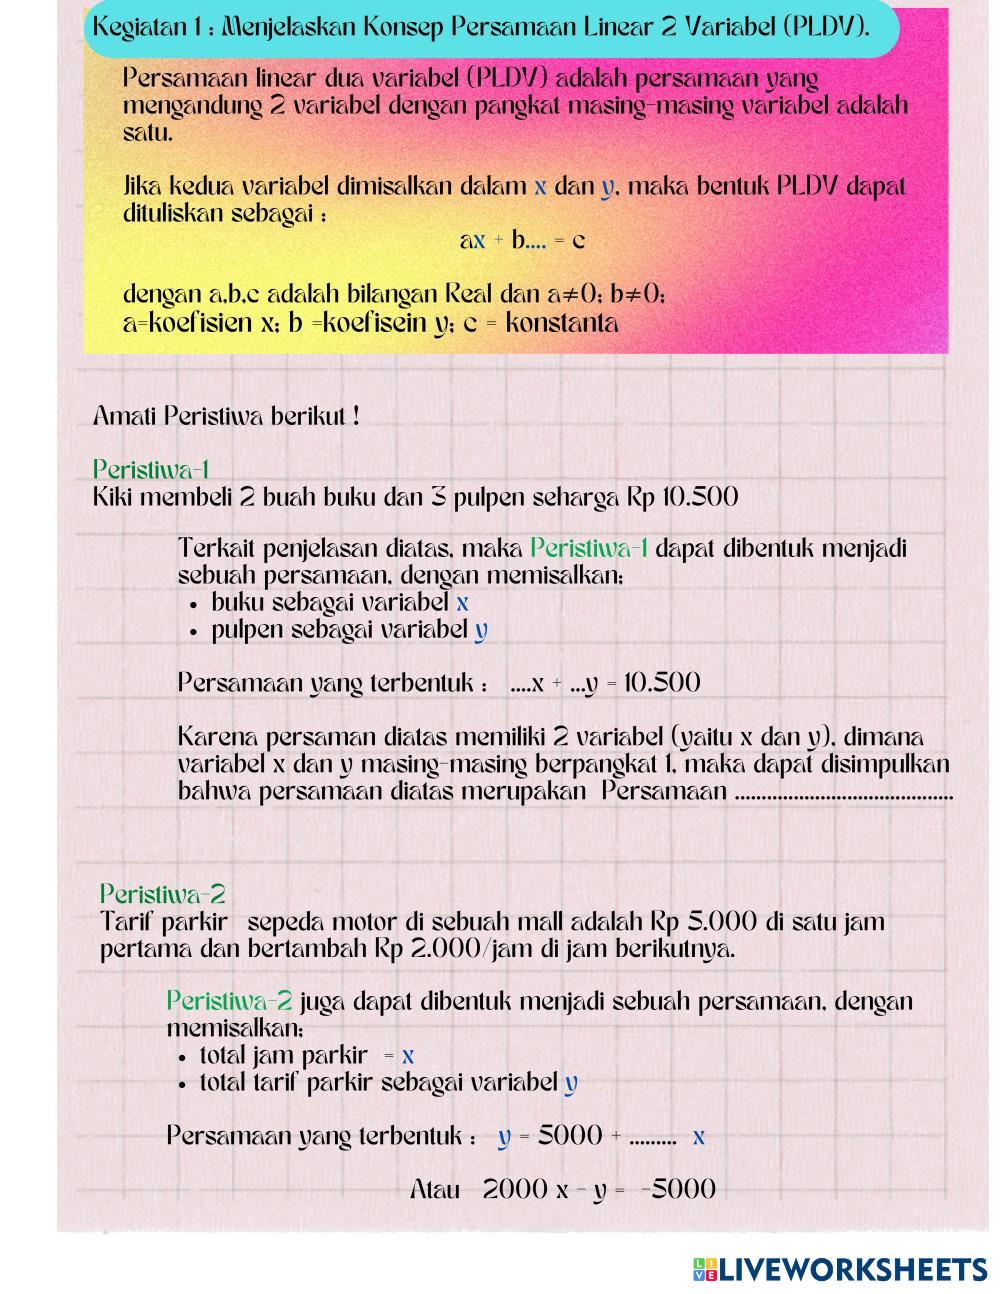 Kegiatan 1 : Menjelaskan Konsep Persamaan Linear 2 Variabel (PLDV).
Persamaan linear dua variabel (PLDV) adalah persamaan yang
mengandung 2 variabel dengan pangkat masing-masing variabel adalah
satu.
Jika kedua variabel dimisalkan dalam x dan y, maka bentuk PLDV dapat
dituliskan sebagai :
ax + b.... = c
dengan a,b,c adalah bilangan Real dan a≠0; b≠0;
a=koefisien x; b =koefisein y; c = konstanta
Amati Peristiwa berikut !
Peristiwa-1
Kiki membeli 2 buah buku dan 3 pulpen seharga Rp 10.500
Terkait penjelasan diatas, maka Peristiwa-1 dapat dibentuk menjadi
sebuah persamaan, dengan memisalkan;
• buku sebagai variabel x
• pulpen sebagai variabel y
Persamaan yang terbentuk : ....x + ...y = 10.500
Karena persaman diatas memiliki 2 variabel (yaitu x dan y), dimana
variabel x dan y masing-masing berpangkat 1, maka dapat disimpulkan
bahwa persamaan diatas merupakan Persamaan .........................................
Peristiwa-2
Tarif parkir sepeda motor di sebuah mall adalah Rp 5.000 di satu jam
pertama dan bertambah Rp 2.000/jam di jam berikutnya.
Peristiwa-2 juga dapat dibentuk menjadi sebuah persamaan, dengan
memisalkan;
• total jam parkir = x
• total tarif parkir sebagai variabel y
Persamaan yang terbentuk : y = 5000 + ......... x
Atau 2000 x - y = -5000
LIVE LIVEWORKSHEETS